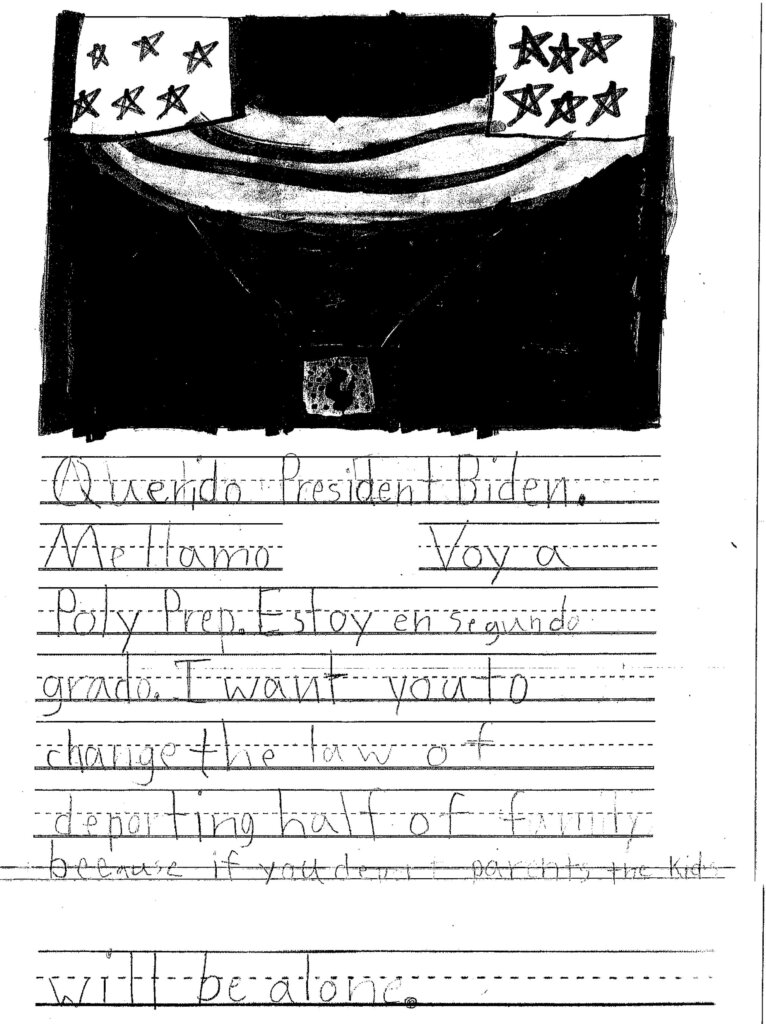 Querido President Biden.
Me llamo Voy a
Poly Prep. Estoy en segundo
grado. I want you to
change the law of
deporting half of family
because if you deport parents the kids
will be alone.